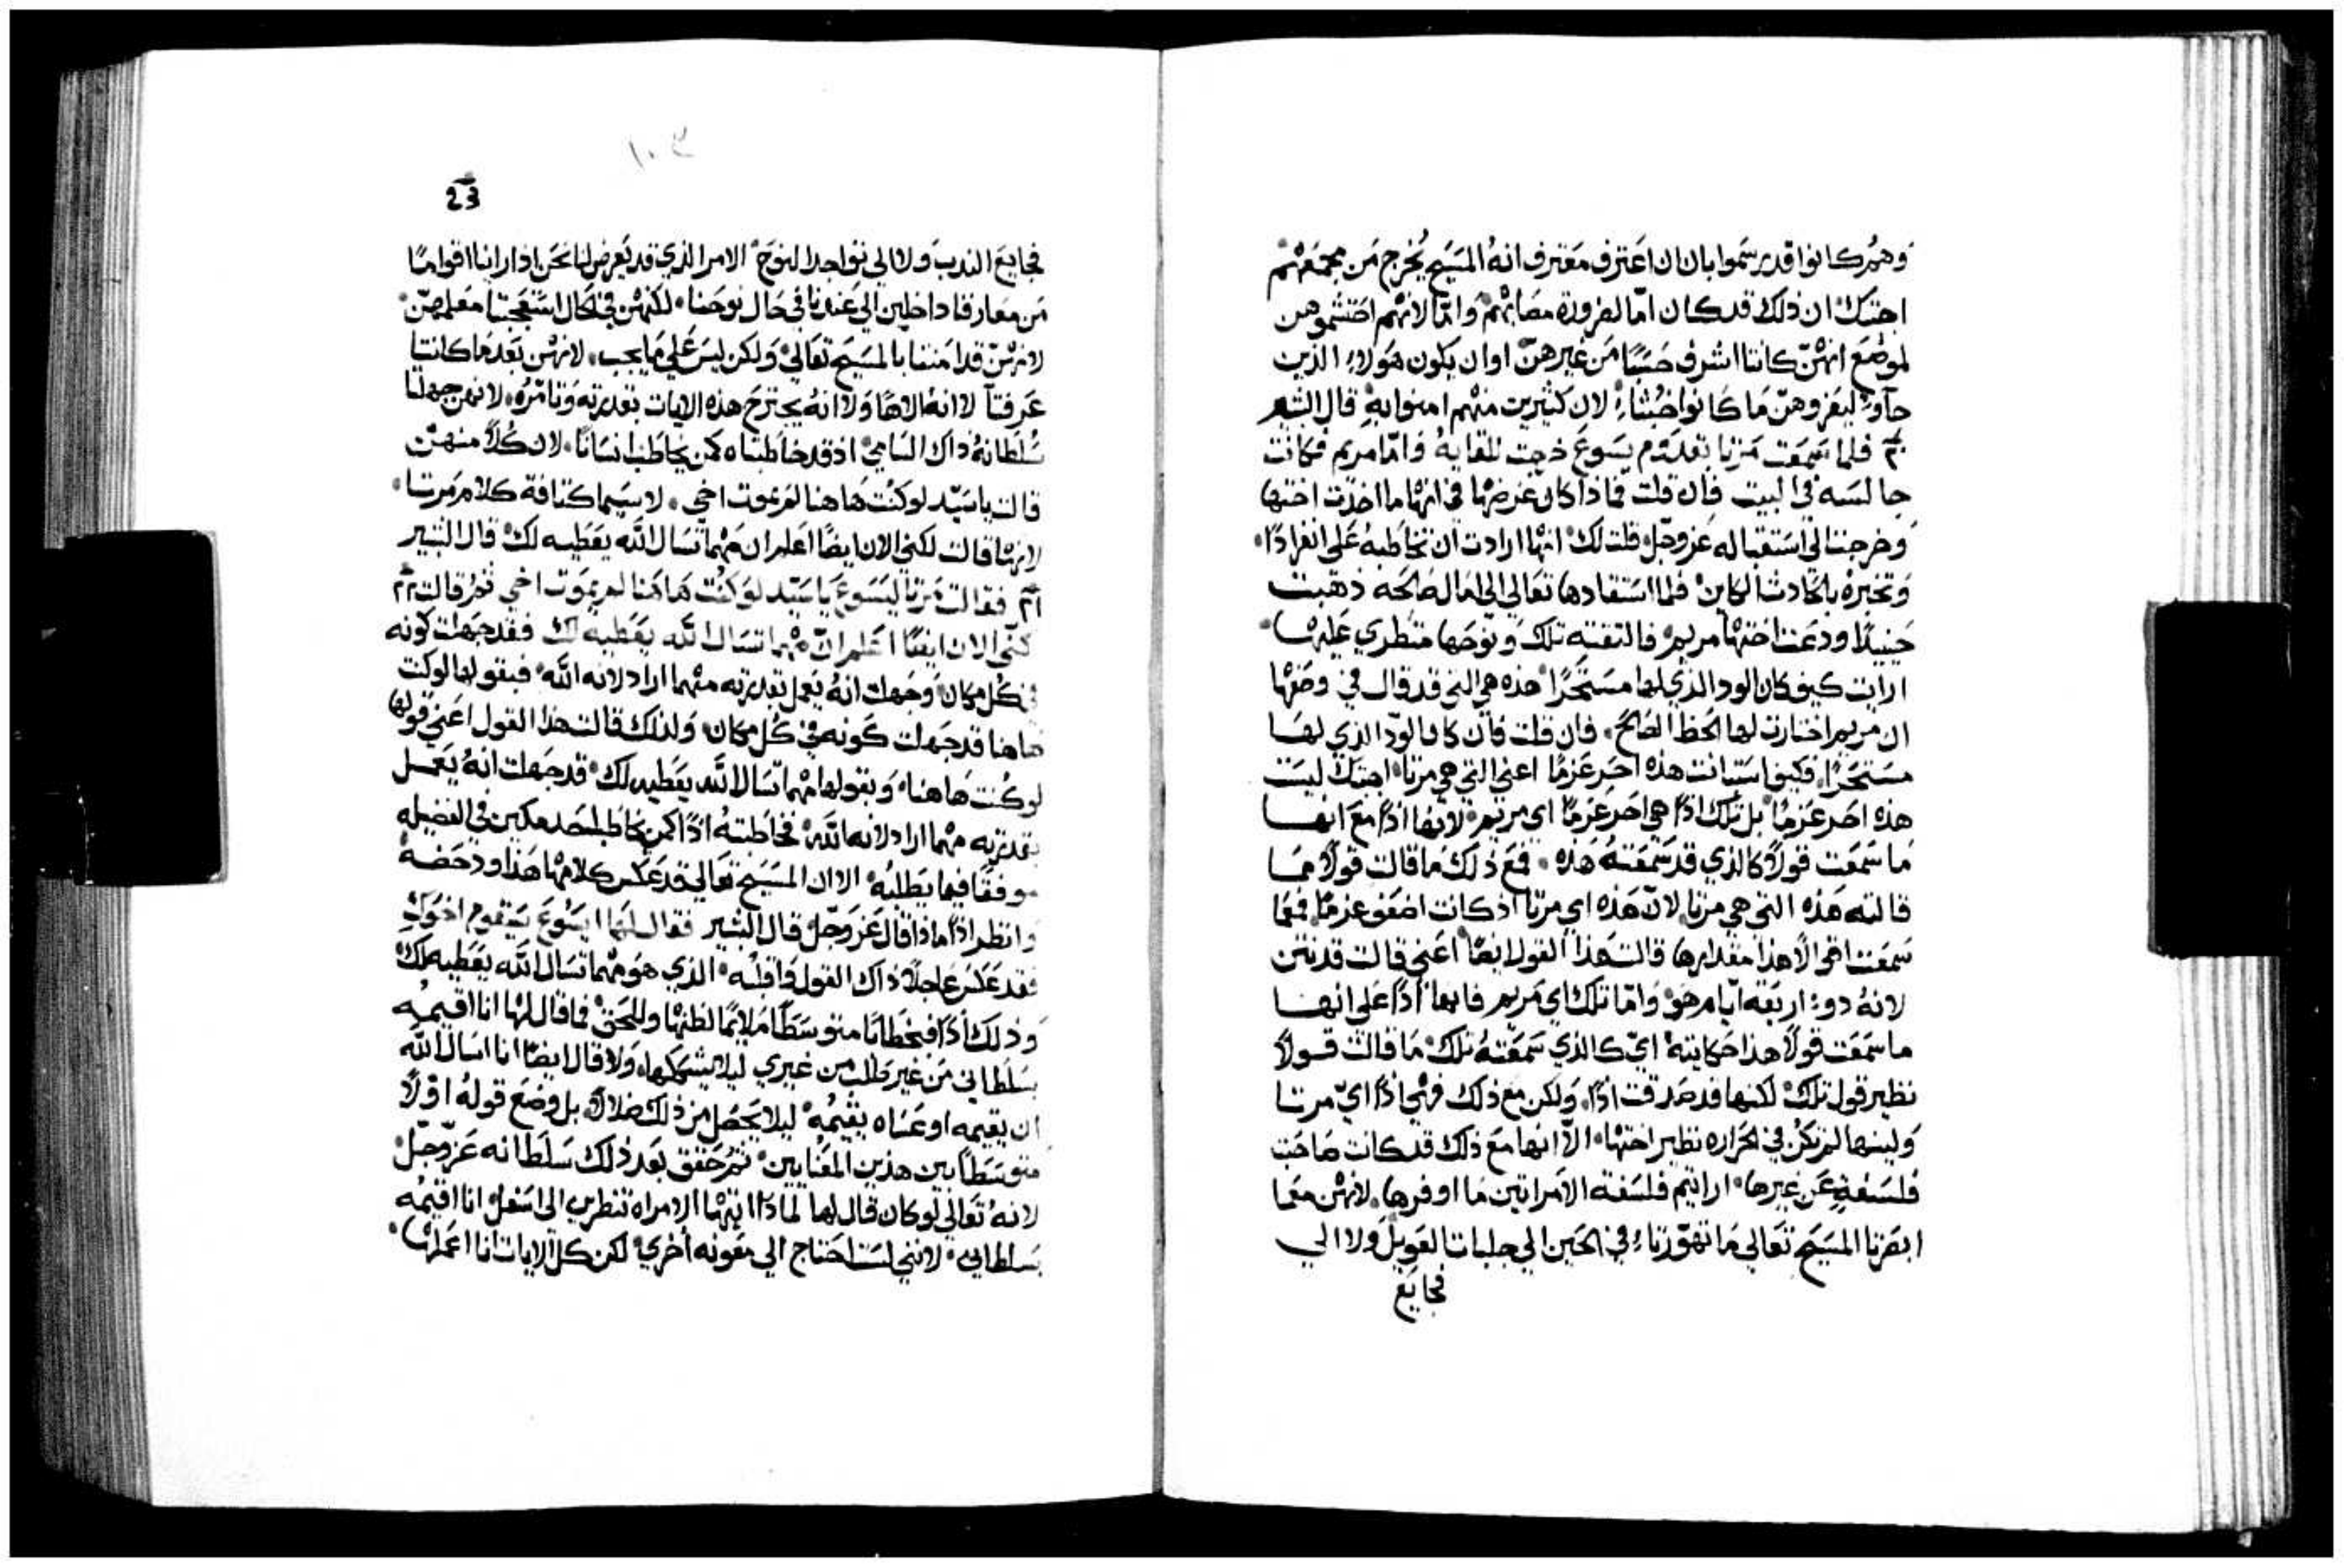 وهم كانوا قد رسموا بان ان اعترف معترف انه المسيح يخرج من مجمعهم
اجبتك ان ذلك قد كان اما لضرورة مصابهم واما لانهم احتشموهن
لموضع انهن كانتا اشرف حسبًا من غيرهن او ان يكون هولاء الذين
جآوا ليعزوهن ما كانوا خبثاء لان كثيرين منهم امنوا به قال البشير
فلما سمعت مرتا بقدوم يسوع خرجت للقايه واما مريم فكانت
جالسه في البيت فان قلت فماذا كان غرضها في انها ما اخذت اختها
وخرجتا الى استقباله عز وجل قلت لك انها ارادت ان تخاطبه على انفرادًا
وتخبره بالحادث الكاين فلما استقادها تعالي الى امال صالحه ذهبت
حينيذًا ودعت اختها مريم فالتقته تلك ونوحها متطري عليها
ارايت كيف كان الود الذي لها مستحرًا هذه هي التي قد قال في وصفها
ان مريم اختارت لها الحظ الصالح فان قلت فان كان الود الذي لها
مستحرًا فكيف استبانت هذه احر عزمًا اعني التي هي مرتا اجبتك ليست
هذه احر عزمًا بل تلك اذًا هي احر عزمًا اي مريم لانها اذًا مع انها
ما سمعت قولاً كالذي قد سمعته هذه فمع ذلك ما قالت قولاً مما
قالته هذه التي هي مرتا لان هذه اي مرتا اذ كانت اضعف عزمًا فمعما
سمعت اقوالاً هذا مقدارها قالت هذا القول ايضًا اعني قالت قد نتن
لانه ذو اربعة ايام هو واما تلك اي مريم فانها اذًا على انها
ما سمعت قولاً هذا حكايته اي كالذي سمعته تلك ما قالت قولاً
نظير قول تلك لكنها قد صدقت اذًا ولكن مع ذلك فهي اذًا اي مرتا
ولينها لم تكن في الحراره نظير اختها الا انها مع ذلك قد كانت صاحبت
فلسفةٍ عن غيرها ارايتم فلسفة الامراتين ما اوفرها لانهن معما
ابصرتا المسيح تعالي ما تهورتا في الحين الي جلبات العويل ولا الي
فجايع
١٠٣
23
فجايع الندب ولا الي تواجد النوح الامر الذي قد يعرض لنا نحن اذا راينا اقوامًا
من معارفنا داخلين الي عندنا في حال نوحنا لكنهن في الحال استعجبتا معلمهن
لانهن قد امنتا بالمسيح تعالي ولكن ليس علي ما يجب لانهن بعد ما كانتا
عرفتا لا انه الاهًا ولا انه يجترح هذه الايات بقدرته وتامره لانهن جهلتا
سلطانه ذاك السامي اذ قد خاطبتاه كمن يخاطب انسانًا لان كلاً منهن
قالت يا سيد لو كنت هاهنا لم يموت اخي لا سيما كثافة كلام مرتا
لانها قالت لكني الان ايضًا اعلم ان مهما تسال الله يعطيه لك قال البشير
فقالت مرتا ليسوع يا سيد لو كنت هاهنا لم يموت اخي ثم قالت
لكني الان ايضًا اعلم ان مهما تسال الله يعطيه لك فقد جهلت كونه
في كل مكان وجهلت انه يعمل بقدرته مهما اراد لانه الله فبقولها لو كنت
هاهنا قد جهلت كونه في كل مكان ولذلك قالت هذا القول اعني قولها
لو كنت هاهنا وبقولها مهما تسال الله يعطيه لك قد جهلت انه يعمل
بقدرته مهما اراد لانه الله فخاطبته اذًا كمن يخاطب احد مكين في الفضيله
موفقًا فيما يطلبه الا ان المسيح تعالي قد عكس كلامها هذا ودحضه
وانظر اذًا ماذا قال عز وجل قال البشير فقال لها يسوع سيقوم اخوك
فقد عكس عاجلاً ذاك القول وقلبه الذي هو مهما تسال الله يعطيه لك
وذلك اذًا فخطابًا متوسطًا ملايمًا لظنها وللحق فما قال لها انا اقيمه
بسلطاني من غير طلب من غيري ليلا يشككها ولا قال ايضًا انا اسال الله
ان يقيمه او عساه يقيمه ليلا يحصل من ذلك ضلالاً بل وضع قوله اولاً
متوسطًا بين هذين المعنايين ثم حقق بعد ذلك سلطانه عز وجل
لانه تعالي لو كان قال لها لماذا ايتها الامراه تنظرين الى اسفل انا اقيمه
بسلطاني لانني لست احتاج الي معونه اخري لكن كل الايات انا اعملها